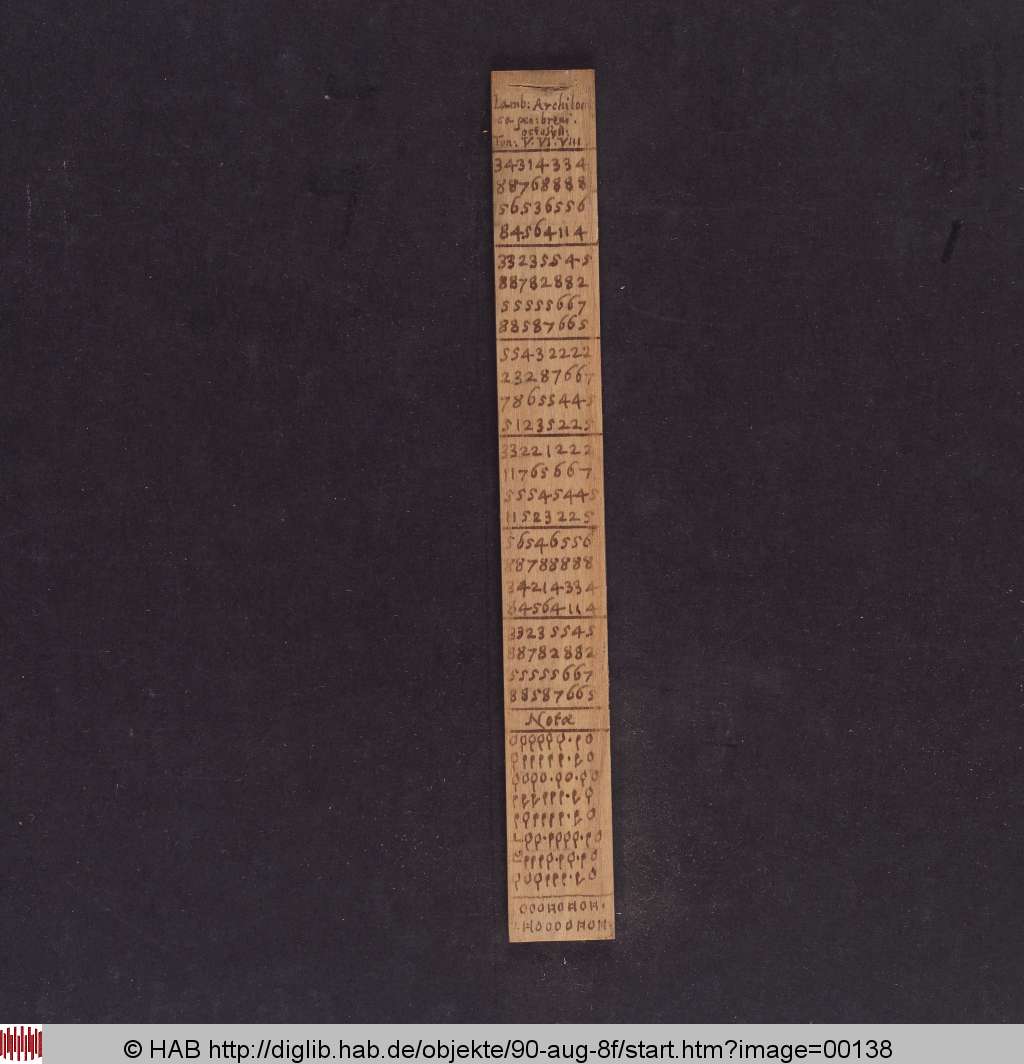 Iamb: Archiloc
ca pen: brevi.
octosyll:
Ton: V. VI. VIII
34314334
88768888
56536556
84564114
33235545
88782882
55555667
88587665
55432222
23287667
78655445
51235225
33221222
11765667
55545445
11523225
56546556
88788888
34214334
84564114
33235545
88782882
55555667
88587665
Notæ
© HAB http://diglib.hab.de/objekte/90-aug-8f/start.htm?image=00138